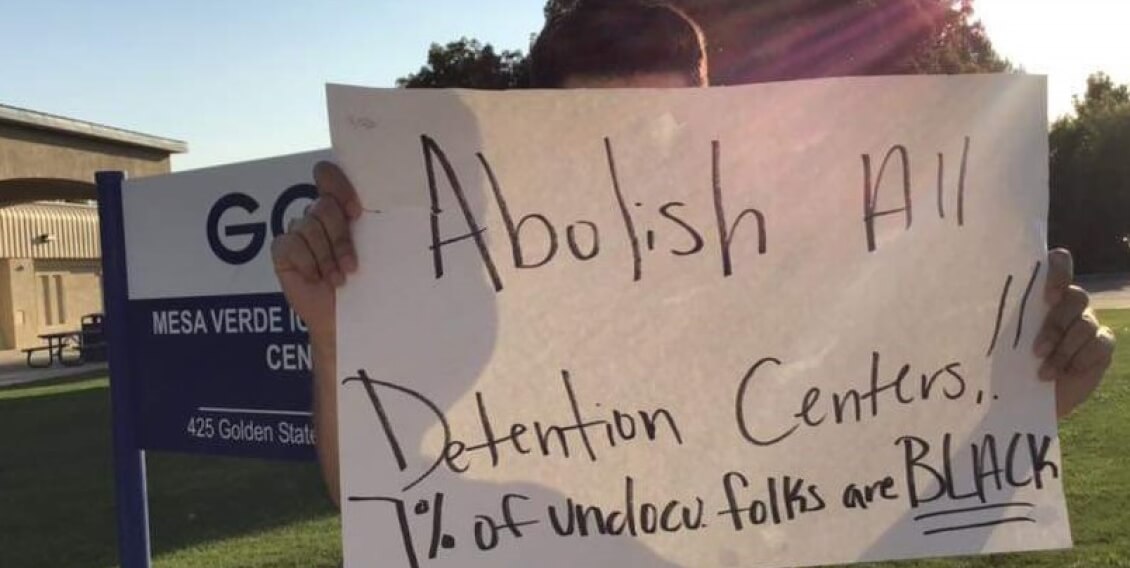 MESA VERDE
425 Golden State
Abolish All
Detention Centers,!!
7% of undocu. folks are BLACK